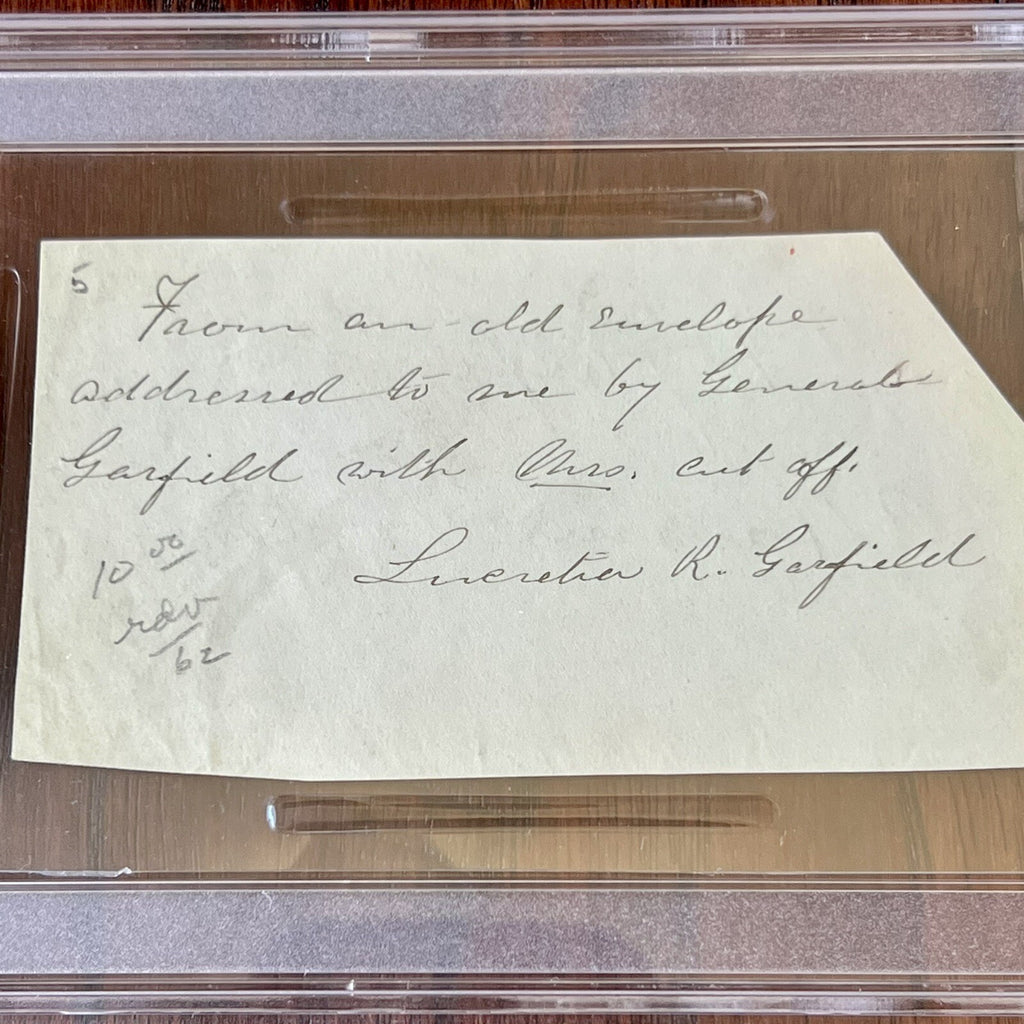 5
From an old envelope
addressed to me by General
Garfield with Mrs. cut off.
Lucretia R. Garfield
10 00
rdv
/62